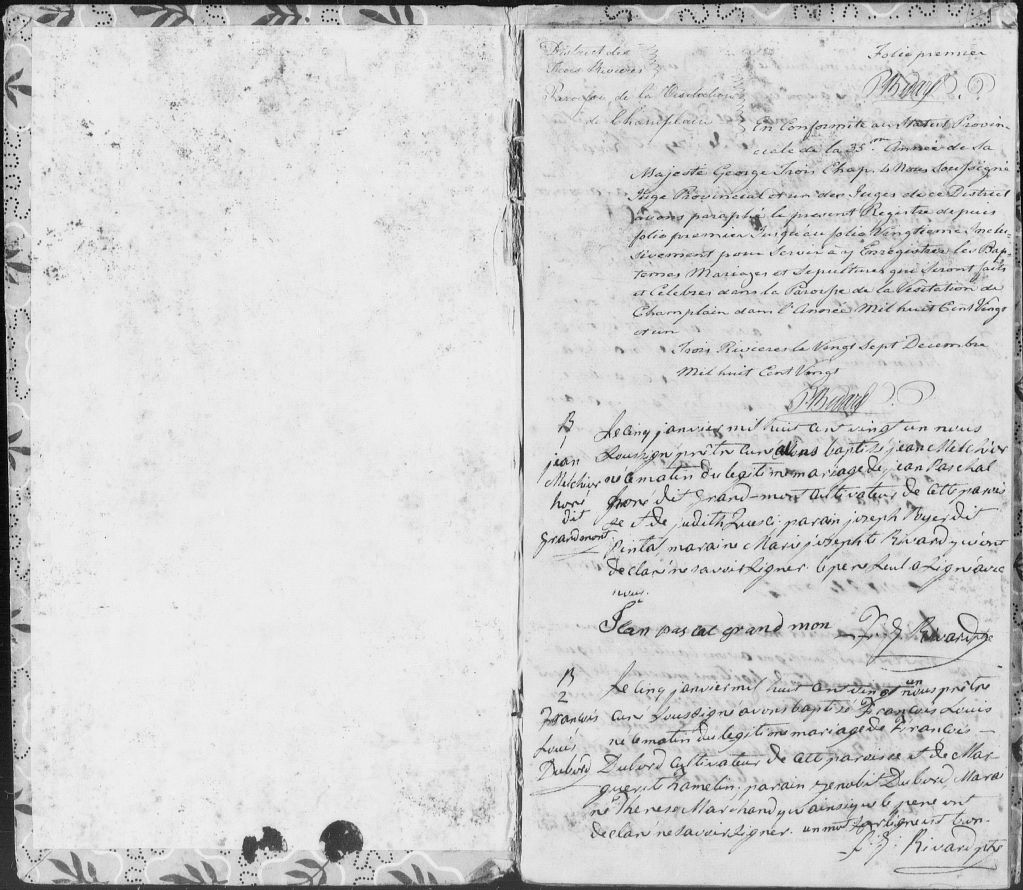 District des
Trois Rivieres
Folio premier
P. Bedard
Paroisse de la Visitation
de Champlain
En Conformité au Statut Provin-
ciale de la 35.me Année de Sa
Majesté George Trois Chap. 4 Nous Soussigné
Juge Provincial et un des Juges de ce District
avons paraphé le present Registre depuis
folio premier Jusqu'au folio Vingtieme Inclu-
sivement pour Servir a y Enregistrer les Bap-
temes Mariages et Sepultures qui Seront faits
et Celebrés dans la Paroisse de la Visitation de
Champlain dans l'Année Mil huit Cent Vingt
et un
Trois Rivieres le Vingt Sept Decembre
Mil huit Cent Vingt
P. Bedard
B
1
jean
Melchior
horé
dit
grandmont
Le cinq janvier mil huit cent vingt un nous
Soussigné prêtre curé avons baptisé jean Melchior
né le matin du legitime mariage de jean Paschal
horé dit Grand-mont cultivateur de cette parois
se et de judith Quesi. parain joseph dit
Pintal, maraine Marie josephte Rivard qui ont
declaré ne savoir signer. le pere seul a signé avec
nous.
Jean pascal grand mon
F. G. Rivard ptre
B
2
François
Louis
Dubord
Le cinq janvier mil huit cent vingt un nous prêtre
curé Soussigné avons baptisé François Louis
né le matin du legitime mariage de François
Dubord cultivateur de cette paroisse et de Mar
guerite hamelin. parain Zenobit Dubord, Marai
ne Therese Marchand qui ainsi que le pere ont
declaré ne savoir signer. un mot sur ligne est bon.
F. G. Rivard ptre